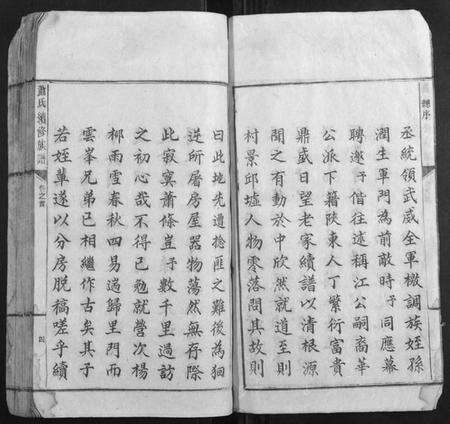 總序
丞統領武威全軍檄調蔟姪孫
潤生軍門為前敵時予同應幕
聘遂予偕往述稱江公嗣裔華
公派下籍陝東人丁繁衍富貴
鼎盛日望老家續譜以清根源
聞之有動於中欣然就道至則
村景邱墟人物零落問其故則
曰此地先遭捻匪之難後為狪
逆所屠房屋器物蕩然無存際
此寂寞蕭條豈予數千里過訪
之初心哉不得已勉就營次楊
柳雨雪春秋四易適歸里門而
雲峯兄弟已相繼作古矣其子
若姪輩遂以分房脫稿嗟乎續
蕭氏續修族譜
卷之首
四